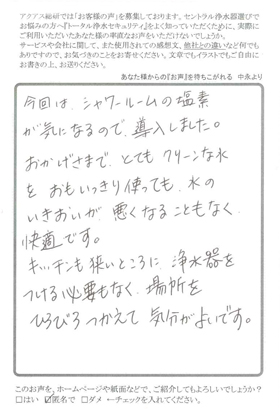 アクアス総研では「お客様の声」を募集しております。セントラル浄水器選びで
お悩みの方へ『トータル浄水セキュリティ』をよく知っていただくために、実際に
ご利用いただいたあなた様の率直なお声をいただけないでしょうか。
サービスや会社に関して、また使用されての感想文、他社との違いなど何でも
ありですので、お気づきのことをお寄せください。文章でもイラストでもご自由に
お書きの上、お送りください。
あなた様からの『お声』を待ちこがれる 中永より
今回は、シャワールームの塩素
が気になるので、導入しました。
おかげさまで、とても クリーンな水
を おもいっきり使っても、水の
いきおいが 悪くなることもなく
快適です。
キッチンも狭いところに、浄水器を
つける必要もなく、場所を
ひろびろ つかえて 気分がよいです。
このお声を、ホームページや紙面などで、ご紹介してもよろしいでしょうか?
□はい ☑匿名で □ダメ ←チェックを入れてください。